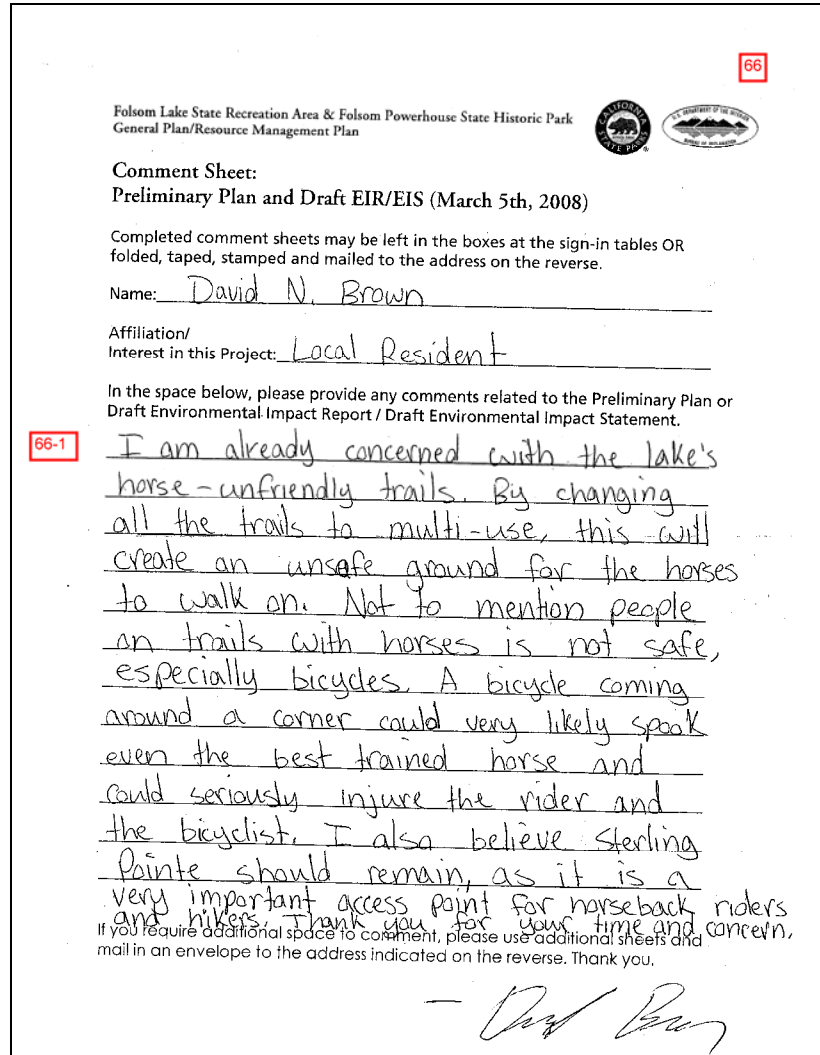 66
Folsom Lake State Recreation Area & Folsom Powerhouse State Historic Park
General Plan/Resource Management Plan
CALIFORNIA
STATE PARKS
U.S. DEPARTMENT OF THE INTERIOR
BUREAU OF RECLAMATION
Comment Sheet:
Preliminary Plan and Draft EIR/EIS (March 5th, 2008)
Completed comment sheets may be left in the boxes at the sign-in tables OR
folded, taped, stamped and mailed to the address on the reverse.
Name: David N. Brown
Affiliation/
Interest in this Project: Local Resident
In the space below, please provide any comments related to the Preliminary Plan or
Draft Environmental Impact Report / Draft Environmental Impact Statement.
66-1
I am already concerned with the lake's
horse-unfriendly trails. By changing
all the trails to multi-use, this will
create an unsafe ground for the horses
to walk on. Not to mention people
on trails with horses is not safe,
especially bicycles. A bicycle coming
around a corner could very likely spook
even the best trained horse and
could seriously injure the rider and
the bicyclist. I also believe Sterling
Pointe should remain, as it is a
very important access point for horseback riders
and hikers. Thank you for your time and concern.
If you require additional space to comment, please use additional sheets and
mail in an envelope to the address indicated on the reverse. Thank you.